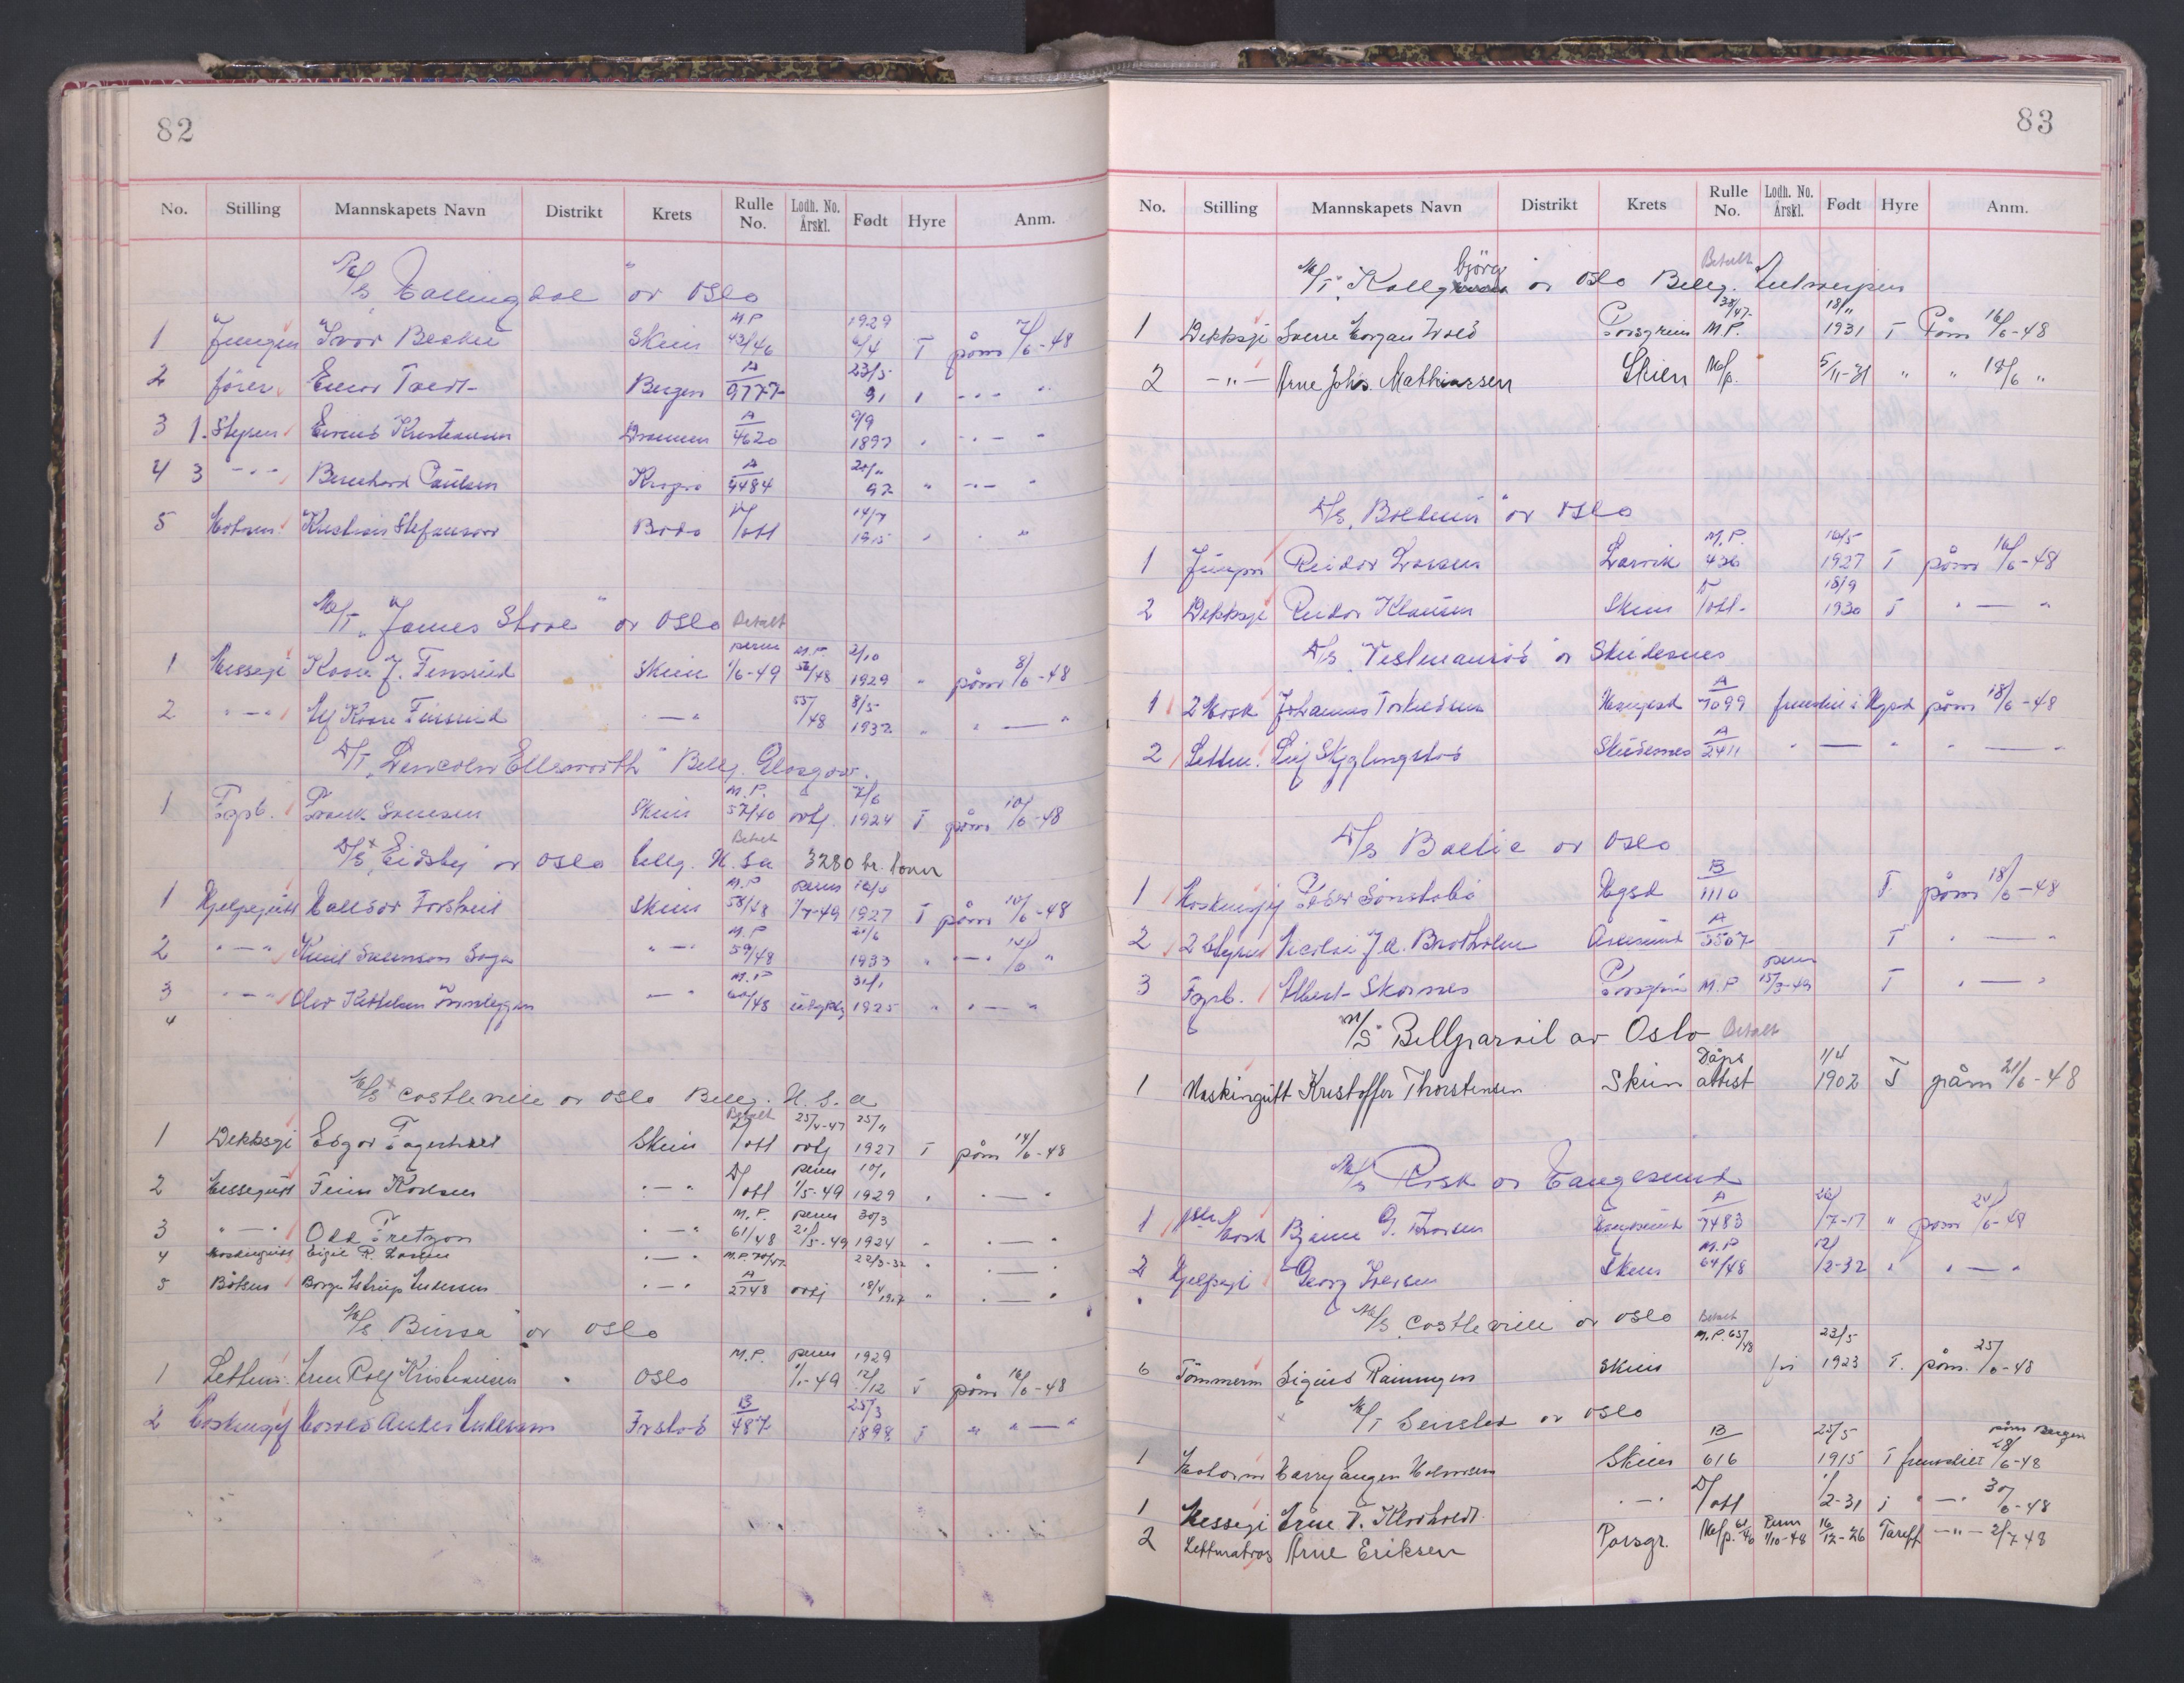 82
No. Stilling Mannskapets Navn Distrikt Krets Rulle No. Lodh. No. Årskl. Født Hyre Anm.
M/S Hallingdal" av Oslo
1 Jungm Ivar Skien M.P. 43/46 1929 6/4 T påm 7/6-48
2 fører Einar Bergen A 9777 23/5 91 " - " - "
3 1. Styrm Kristiansen Drammen A 4620 9/9 1897 " - " - "
4 3 - " - Bernhard Paulsen Kragerø A 4484 97 " - " - "
5 Motorm Kristian Stefansson Bodø D/att 14/7 1915 " " "
M/T "James Stove" av Oslo Betalt
1 Messegt Kaare J. Finsrud Skien perm 1/6-49 M.P. 56/48 2/10 1929 " påm 8/6-48
2 " - " Alf Kaare Finsrud " - " 55/48 8/5 1932 " " - "
D/T "Lincoln Ellsworth" Belig. Glasgow.
1 Fyrb. Frank Sørensen Skien M.P. 57/40 ovtj 7/6 1924 T påm 10/6-48
D/S "Eidsby" av Oslo belig. U.Sa 3280 br. tonn Betalt
1 Hjelpegutt Halvor Forsberg Skien M.P. 58/48 perm 1/7-49 1927 T påm 10/6-48
2 " - " Knut Svensson Saga " - " M.P. 59/48 21/6 1933 " " - " 14/6 "
3 " - " Olav Kittelsen " - " M.P. 60/48 31/1 1925 " " - "
4
M/S Castleville av Oslo Belig. U.S.A
1 Dekksgt Edgar Fagerholt Skien Betalt D/att 25/4-47 ovtj 25/11 1927 T påm 14/6-48
2 Messegutt Finn Karlsen " - " D/att perm 1/5-49 10/1 1929 " " - "
3 " - " Odd Fretzon " - " M.P. 61/48 perm 21/5-49 30/3 1924 " " - "
4 Maskingutt Eigil R. Larsen " - " M.P. 70/47 22/3-32 " " - "
5 Båtsm Børge Ustrup Andersen " - " A 2748 ovtj 18/4 1917 " " - "
M/S "Bursa" av Oslo
1 Lettm. Arne Rolf Kristiansen Oslo M.P. perm 1/1-49 1929 12/12 T påm 16/6-48
2 Maskingt Harald Anker Andersen B 487 25/3 1898 T " " - "
83
No. Stilling Mannskapets Navn Distrikt Krets Rulle No. Lodh. No. Årskl. Født Hyre Anm.
M/T "Kollbjörg" av Oslo Belig. Antwerpen Betalt
1 Dekksgt Sverre Porsgrunn 38/47 M.P. 18/11 1931 T Påm 16/6-48
2 - " - Arne Johs. Mathiassen Skien M/p. 5/11-31 " " 18/6 "
D/S "Boltein" av Oslo
1 Jungm Reidar Larsen Larvik M.P. 436 16/5 1927 T påm 16/6-48
2 Dekksgt Reidar Klausen Skien D/att. 18/9 1930 T " - "
D/S "Vestmanrød" av Skudesnes
1 2 Mask Johannes Torkildsen Haugesd A 7099 fremstilt i Hgsd påm 18/6-48
2 Lettm. Leif Skjglingstad Skudesnes A 2411 " - " " - "
D/S Baltic av Oslo
1 Maskinsgt Peder Sønstabø Hgsd B 1110 T påm 18/6-48
2 2 Styrm Nicolai J A. Brotholm Ålesund A 3567 T " - "
3 Fyrb. Albert Skarnes Porsgrn M.P perm 15/3-49 T " - "
M/S Bellpareil av Oslo Betalt
1 Maskingutt Kristoffer Thorstensen Skien Dåps attest 1/4 1902 T påm 21/6-48
M/S Risk av Haugesund
1 1ste Mask Bjarne G. Thorsen Haugesund A 7483 26/7-17 " påm 24/6-48
2 Hjelpegt Georg Iversen Skien M.P 64/48 12/2-32 " " - "
M/S Castleville av Oslo Betalt
6 Tömmerm Sigurd Rainingen Skien M.P. 65/48 23/5 1923 T. påm 25/6-48
M/T Seirstad av Oslo
1 Motorm Harry Eugen Halvorsen Skien B 616 25/5 1915 T fremstilt påm Bergen 28/6-48
1 Messegt Arne T. Klovholdt " - " D/att 1/2-31 T " - " 30/6-48
2 Lettmatros Arne Eriksen Porsgr. M/p. 61/46 Perm 1/10-48 16/12-26 Tariff - " - 2/7 48